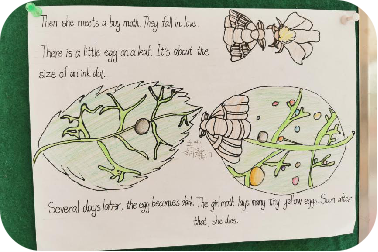 Then she meets a boy moth. They fall in love.
There is a little egg on a leaf. It's about the
size of an ink dot.
Several days later, the egg becomes dark. The girl moth lays many tiny yellow eggs. Soon after
that, she dies.